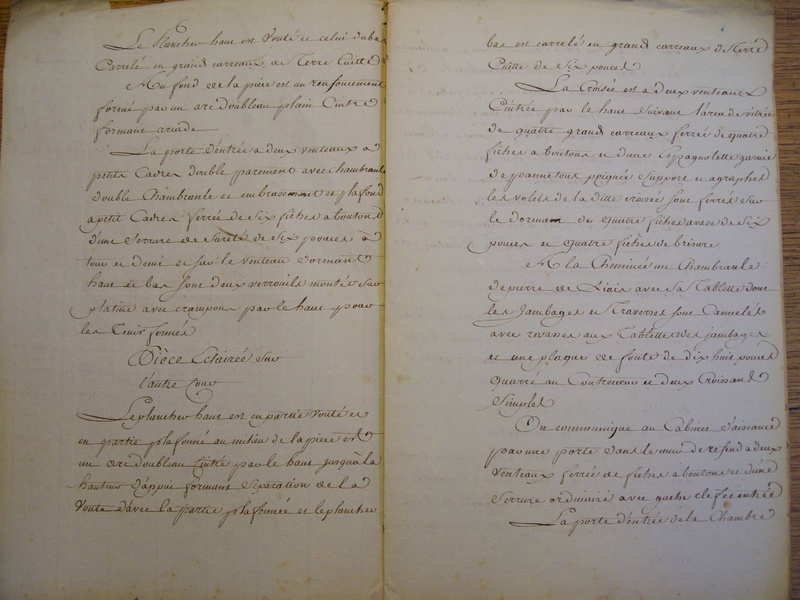 Le Plancher haut est Vouté et celui du bas
Carrelé en grand carreaux de Terre Cuitte
Au fond de la piece est un renfoncement
formé par un arc doubleau plain Cintre
formant arcade
La porte d'entrée a deux venteaux a
petits Cadres double parement avec chambranle
double Chambranle et embrasement et plafond
a petit Cadres ferrée de Six fiches a boutons
d'une Serrure de Sureté de Six pouces, a
tour et demi et sur le venteau dormant
haut et bas sont deux verrouils montés sur
platine avec crampons par le haut pour
les Tenir fermés
Pièce Eclairée sur
l'autre Cour
Le plancher haut est en partie Vouté et
en partie plafonné au milieu de la piece est
un arc doubleau Cintré par le haut jusqu'a la
hauteur d'appui formant Séparation de la
Voute d'avec la partie plafonnée et le plancher
bas est carrelé en grand carreaux de Terre
Cuitte de Six pouces
La Croisée est a deux venteaux
Cintrée par le haut Suivant l'arc de vitrée
de quatre grand carreaux ferrée de quatre
fiches a boutons et d'une Espagnolette garnie
de pannetons poignée Support et agraphes
les volets de la ditte croisée sont ferrés sur
le dormant de quatre fiches avase de Six
pouces et quatre fiches de brisure
A la Cheminée un Chambranle
de pierre de Liais avec sa Tablette dont
les Jambages et Traverses sont Cannelés
avec revasses aux Tablettes des jambages
et une plaque de fonte de dix huit pouces
quarré au Contrecoeur et deux Croissant
Simples
On communique au Cabinet d'aisance
par une porte dans le mur de refend a deux
venteaux ferrée de fiches a boutons et d'une
Serrure ordinaire avec gache clef et entrée
La porte d'entrée de la Chambre